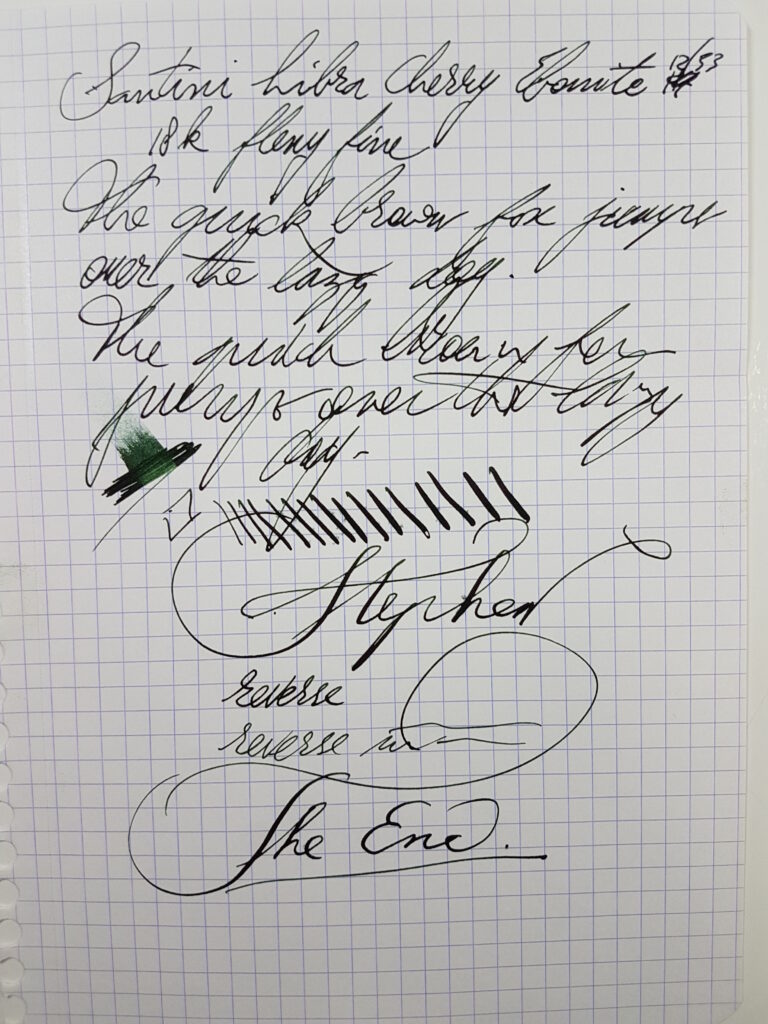 Santini Libra Cherry Ebonite 13/53
18k flexy fine
The quick brown fox jumps
over the lazy dog.
The quick brown fox
jumps over the lazy
dog.
Stephen
reverse
reverse
The End.